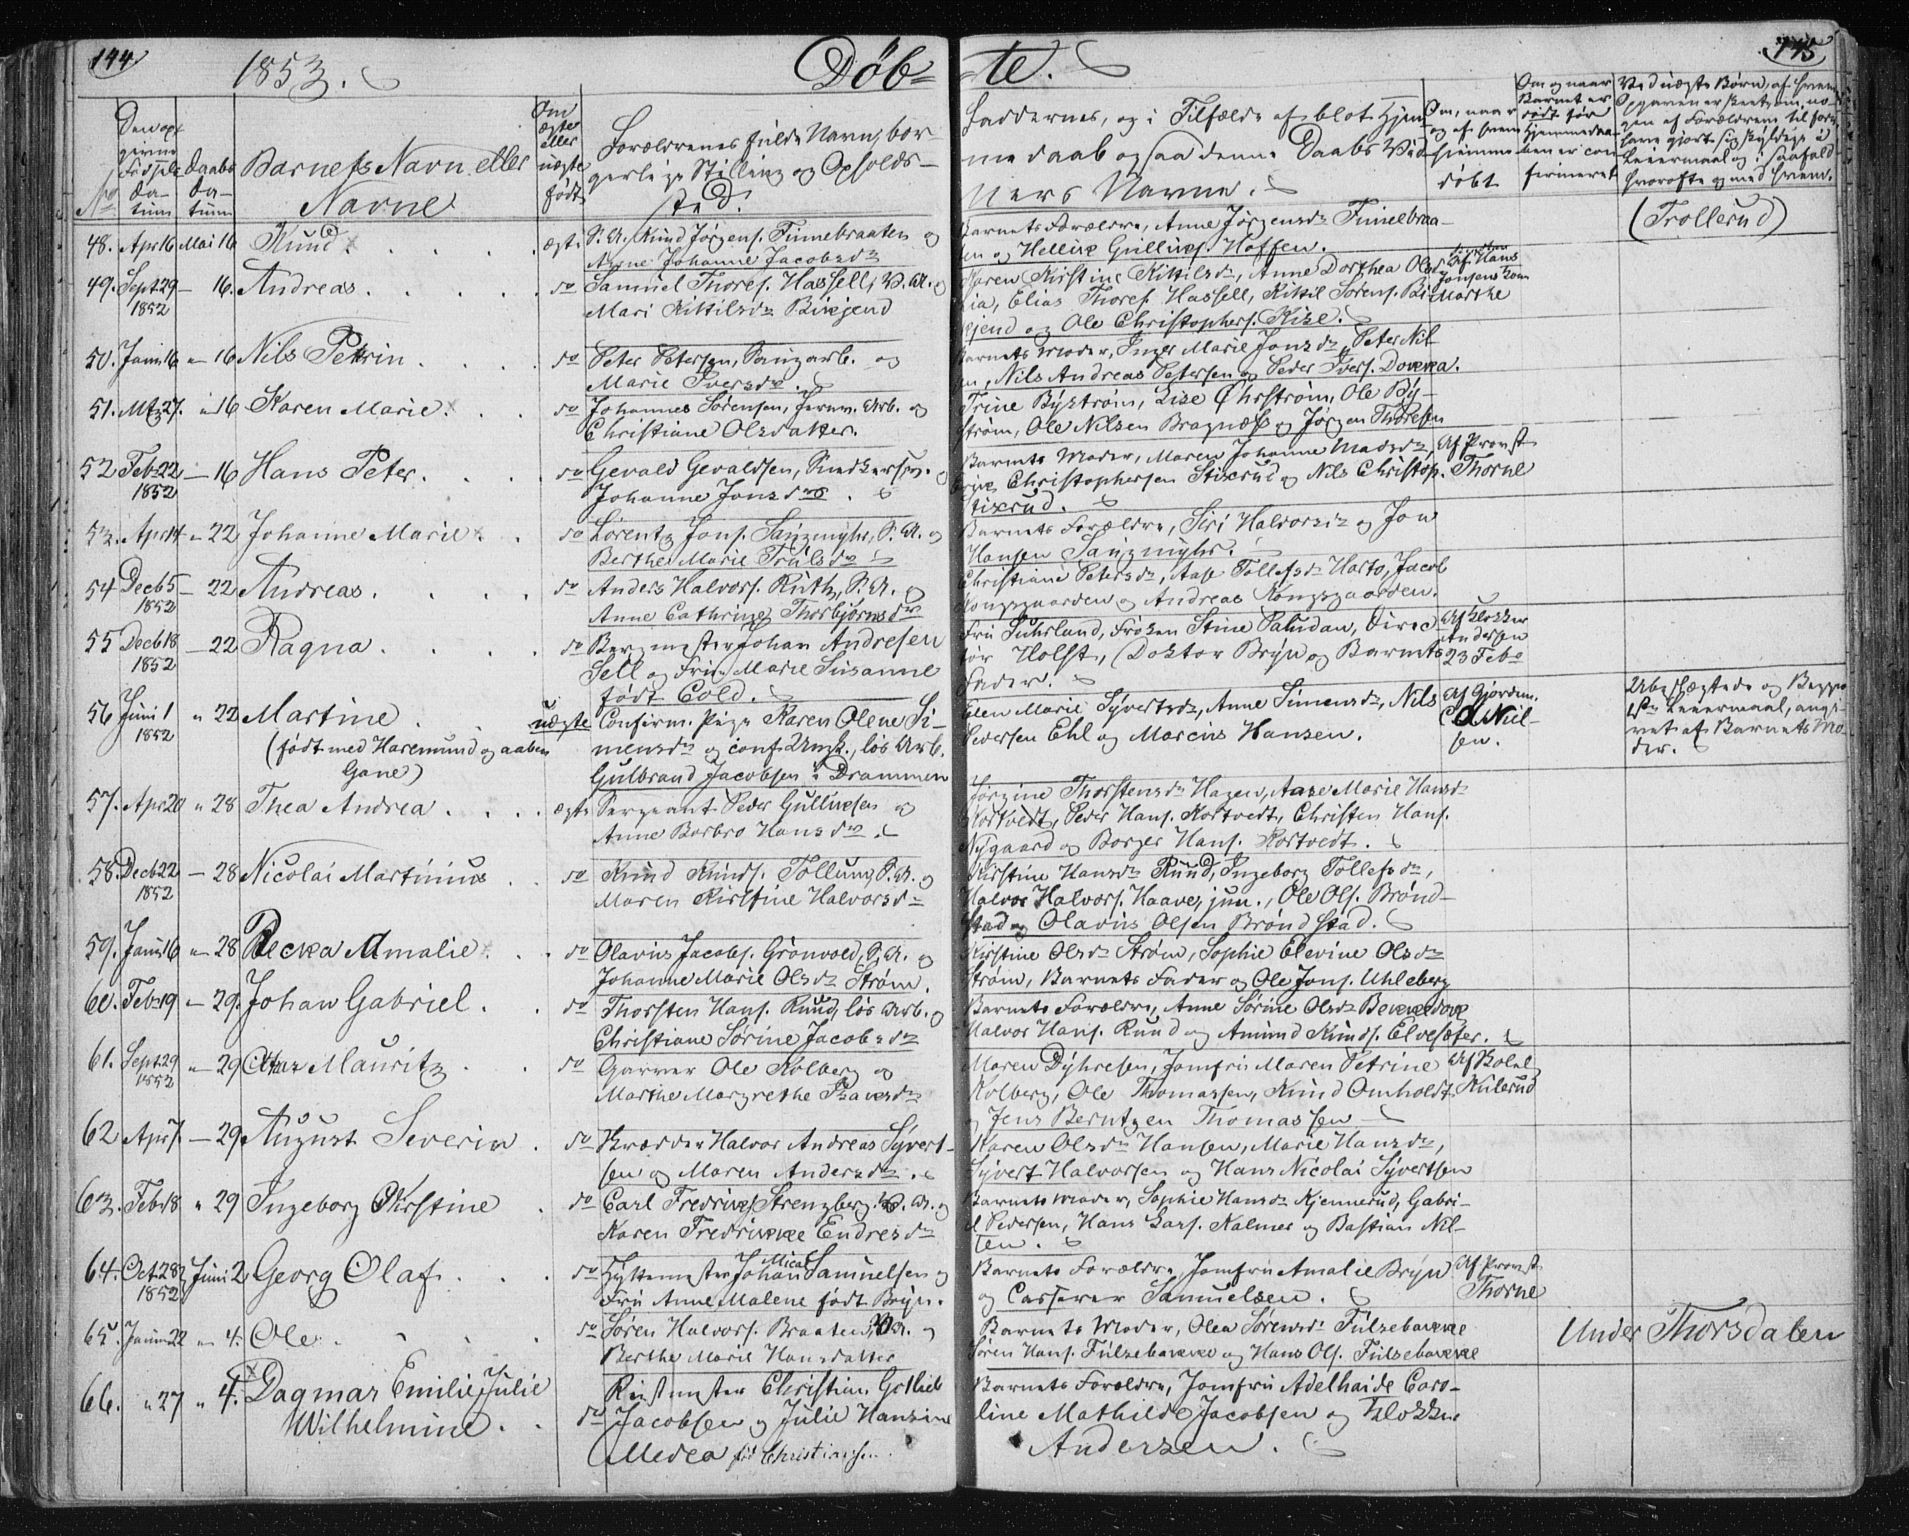 144
1853.
Døb-
te.
145
No
Den op-
givne
Fødsels
da-
tum
Daabs
da-
tum
Barnets Navn eller
Navne
Om
ægte
eller
uægte
født
Forældrenes fulde Navn, bor
gerlige Stilling og Opholds-
sted.
Faddernes, og i Tilfælde af blot Hjem
me daab ogsaa denne Daabs Vid-
ners Navne.
Om, naar
og af hvem
hjemme
døbt
Om og naar
Barnet er
født før
Hjemmedaa-
ben er con
firmeret
Ved uægte Børn, af hvem
Opgaven er skeet, om no-
gen af Forældrene til forn
have gjort sig skyldige i
Leiermaal og i saafald
hvorofte og med hvem.
48. Apr 16 Mai 16 Knud ægte S. A. Knud Jørgens. Finnebraaten og
Anne Johanne Jacobsdr
Barnets Forældre, Anne Jørgensdr Finnebraa-
en og Hellik Gulliks. Hoffen.
(Trollerud)
49. Sept. 29 1852 - 16. Andreas do Samuel Thores. Hassell, V. A. og
Mari Kittilsdr Bikjend
Karen Kirstine Kittilsdr, Anne Dorthea Olsdr
ia, Elias Thores. Hassell, Kittil Sørens. Bi-
kjend og Ole Christophers. Kise.
Hans
Jensens Kone
Marthe
50. Janu 16 " 16 Nils Petrin do Peter Petersen, Saugarb. og
Marie Iversdr.
Barnets Moder, Inger Marie Jonsdr, Peter Nil-
sen, Nils Andreas Petersen og Peder Ivers. Dokka.
51. Mtz 27. " 16 Karen Marie do Johannes Sørensen, Jernv. Arb. og
Christiane Olsdatter.
Trine Bystrøm, Lise Øhrstrøm, Ole By-
strøm, Ole Nilsen Bragnæss og Jørgen Thoresen
52 Feb 22 1852 - 16 Hans Peter. do Gevald Gevaldsen, Snedkersv. og
Johanne Jonsdr
Barnets Moder, Maren Johanne Madsdr,
Erik Christophersen Stixrud og Nils Christop.
Stixrud.
Af Provst
Thorne
53. Apr 14 " 22 Johanne Marie do Lorentz Jons. Saugmyhr, S. A. og
Berthe Marie Trulsdr
Barnets Forældre, Siri Halvorsdr og Jon
Hansen Saugmyhr.
54 Decb 5 1852 - 22 Andreas. do Anders Halvors. Ruth, S. A. og
Anne Cathrine Thorbjørnsdr
Christiane Petersdr, Aase Tollefsdr Harto, Jacob
Kongsgaarden og Andreas Kongsgaarden.
55 Decb 18 1852 - 22 Ragna. do Bergmester Johan Andresen
Sell og Fru Marie Susanne
født Cold.
Fru Suhrland, Frøken Stine Paludan, Direc-
tør Holst, Doktor Bryn og Barnets
Fader.
Af Klokker
Andersen
23 Feb.
56 Juni 1 1852 " 22 Martine
(født med Haremund og aaben
Gane)
uægte Confirm. Pige Karen Olene Si-
mensdr og conf. Ungk., løs Arb.
Gulbrand Jacobsen i Drammen
Elen Marie Syvertsdr, Anne Simensdr, Nils
Pedersen Ehl og Marcus Hansen.
Af Gjordem.
C. d Niel-
sen.
Ubeslægtede og Begges
1ste Leiermaal, angi-
vet af Barnets Mo-
der.
57. Apr 20 " 28 Thea Andrea ægte Sergeant Peder Gulliksen og
Anne Barbro Hansdr.
Jørgine Thorstensdr Hagen, Aase Marie Hansdr
Kortvedt, Peder Hans. Kortvedt, Christen Hans.
Nygaard og Borger Hans. Kortvedt.
58. Decb 22 1852 - 28 Nicolai Martinius do Knud Knuds. Tollum, S. A. og
Maren Kirstine Halvorsdr
Kirstine Hansdr Ruud, Ingeborg Tollefsdr,
Halvor Halvors. Haave, jun., Ole Ols. Brønd-
stad og Olavus Olsen Brøndstad.
59. Janu 16 " 28 Recka Amalie do Olavus Jacobs. Grønvold, S. A. og
Johanne Marie Olsdr Strøm.
Kirstine Olsdr Strøm, Sophie Elevine Olsdr
Strøm, Barnets Fader og Ole Jons. Uhleberg
60. Feb 19 - 29. Johan Gabriel. do Thorsten Hans. Ruud, løs Arb. og
Christiane Sørine Jacobsdr
Barnets Forældre, Anne Sørine Olsdr Bekkedok
Halvor Hans. Ruud og Amund Knuds. Elvesæter.
61. Sept. 29 1852 " 29 Mauritz do Garver Ole Kolberg og
Marthe Margrethe
Maren Dyhresen, Jomfru Maren Petrine
Kolberg, Ole Thomassen, Knud Omholdt
og Jens Berntzen Thomassen
Af Bolet
Kulerud
62 Apr 7. - 29 August Severin do Skrædder Halvor Andreas Syvert-
sen og Maren Andersdr.
Karen Olsdr Hansen, Marie Hansdr,
Syvert Halvorsen og Hans Nicolai Syvertsen
63. Feb 18 " 29 Ingeborg Kirstine do Carl Fredrik Strengberg, V. A. og
Karen Fredrikke Endresdr
Barnets Moder, Sophie Hansdr Kjennerud, Gabri-
el Pedersen, Hans Lars. Kalmer og Bastian Nil-
sen.
64. Oct. 28 1852 Juni 2 Georg Olaf do Hyttemester Johan Mical Samuelsen og
Fru Anne Malene født Bryn.
Barnets Forældre, Jomfru Amalie Bryn
og Casserer Samuelsen.
Af Provst
Thorne
65. Janu 22 " 4. Ole do Søren Halvors. Braaten, S. A. og
Berthe Marie Hansdatter
Barnets Moder, Olea Sørensdr Fulsebakke
Søren Hans. Fulsebakke og Hans Ols. Fulsebakke
Under Thorsdalen
66. " 27 " 4. Dagmar Emilie Julie
Wilhelmine. do Rustmester Christian Gotlieb
Jacobsen og Julie Hansine
Medea fød Christiansen.
Barnets Forældre, Jomfru Adelhaide Caro-
line Mathilde Jacobsen og Klokker
Andersen.